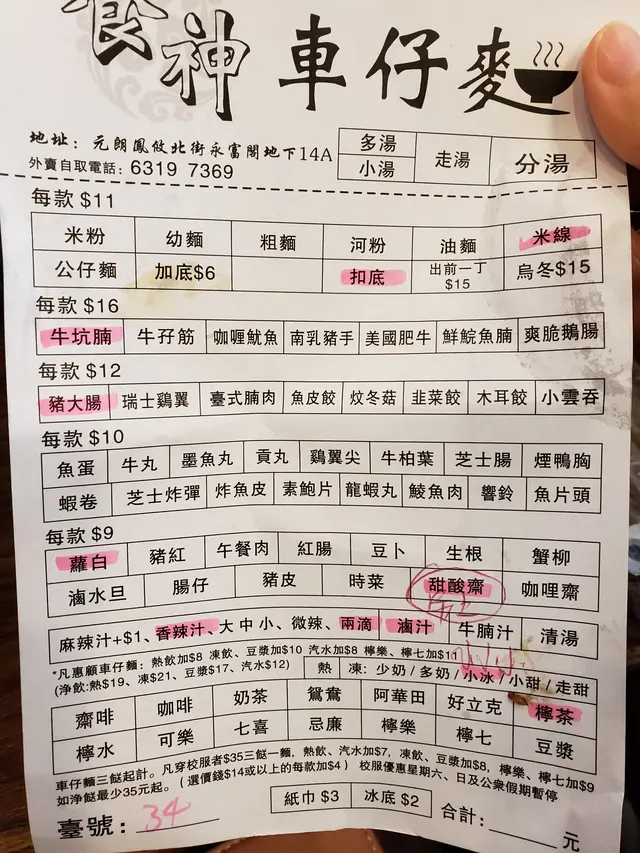 食神車仔麵
地址：元朗鳳攸北街永富閣地下14A
外賣自取電話：6319 7369
多湯 走湯 分湯
小湯
每款 $11
米粉 幼麵 粗麵 河粉 油麵 米線
公仔麵 加底$6 扣底 出前一丁$15 烏冬$15
每款 $16
牛坑腩 牛孖筋 咖喱魷魚 南乳豬手 美國肥牛 鮮鯇魚腩 爽脆鵝腸
每款 $12
豬大腸 瑞士鷄翼 臺式腩肉 魚皮餃 炆冬菇 韭菜餃 木耳餃 小雲吞
每款 $10
魚蛋 牛丸 墨魚丸 貢丸 鷄翼尖 牛柏葉 芝士腸 煙鴨胸
蝦卷 芝士炸彈 炸魚皮 素鮑片 龍蝦丸 鯪魚肉 響鈴 魚片頭
每款 $9
蘿白 豬紅 午餐肉 紅腸 豆卜 生根 蟹柳
滷水旦 腸仔 豬皮 時菜 甜酸齋 咖哩齋
麻辣汁+$1、香辣汁、大中小、微辣、兩滴 滷汁 牛腩汁 清湯
*凡惠顧車仔麵：熱飲加$8 凍飲、豆漿加$10 汽水加$8 檸樂、檸七加$11
(淨飲:熱$19、凍$21、豆漿$17、汽水$12) 熱 凍：少奶/多奶/小冰/小甜/走甜
齋啡 咖啡 奶茶 鴛鴦 阿華田 好立克 檸茶
檸水 可樂 七喜 忌廉 檸樂 檸七 豆漿
車仔麵三餸起計。凡穿校服者$35三餸一麵，熱飲、汽水加$7，凍飲、豆漿加$8，檸樂、檸七加$9
如淨餸最少35元起。（選價錢$14或以上的每款加$4） 校服優惠星期六、日及公衆假期暫停
紙巾 $3 冰底 $2
臺號：34 合計：元